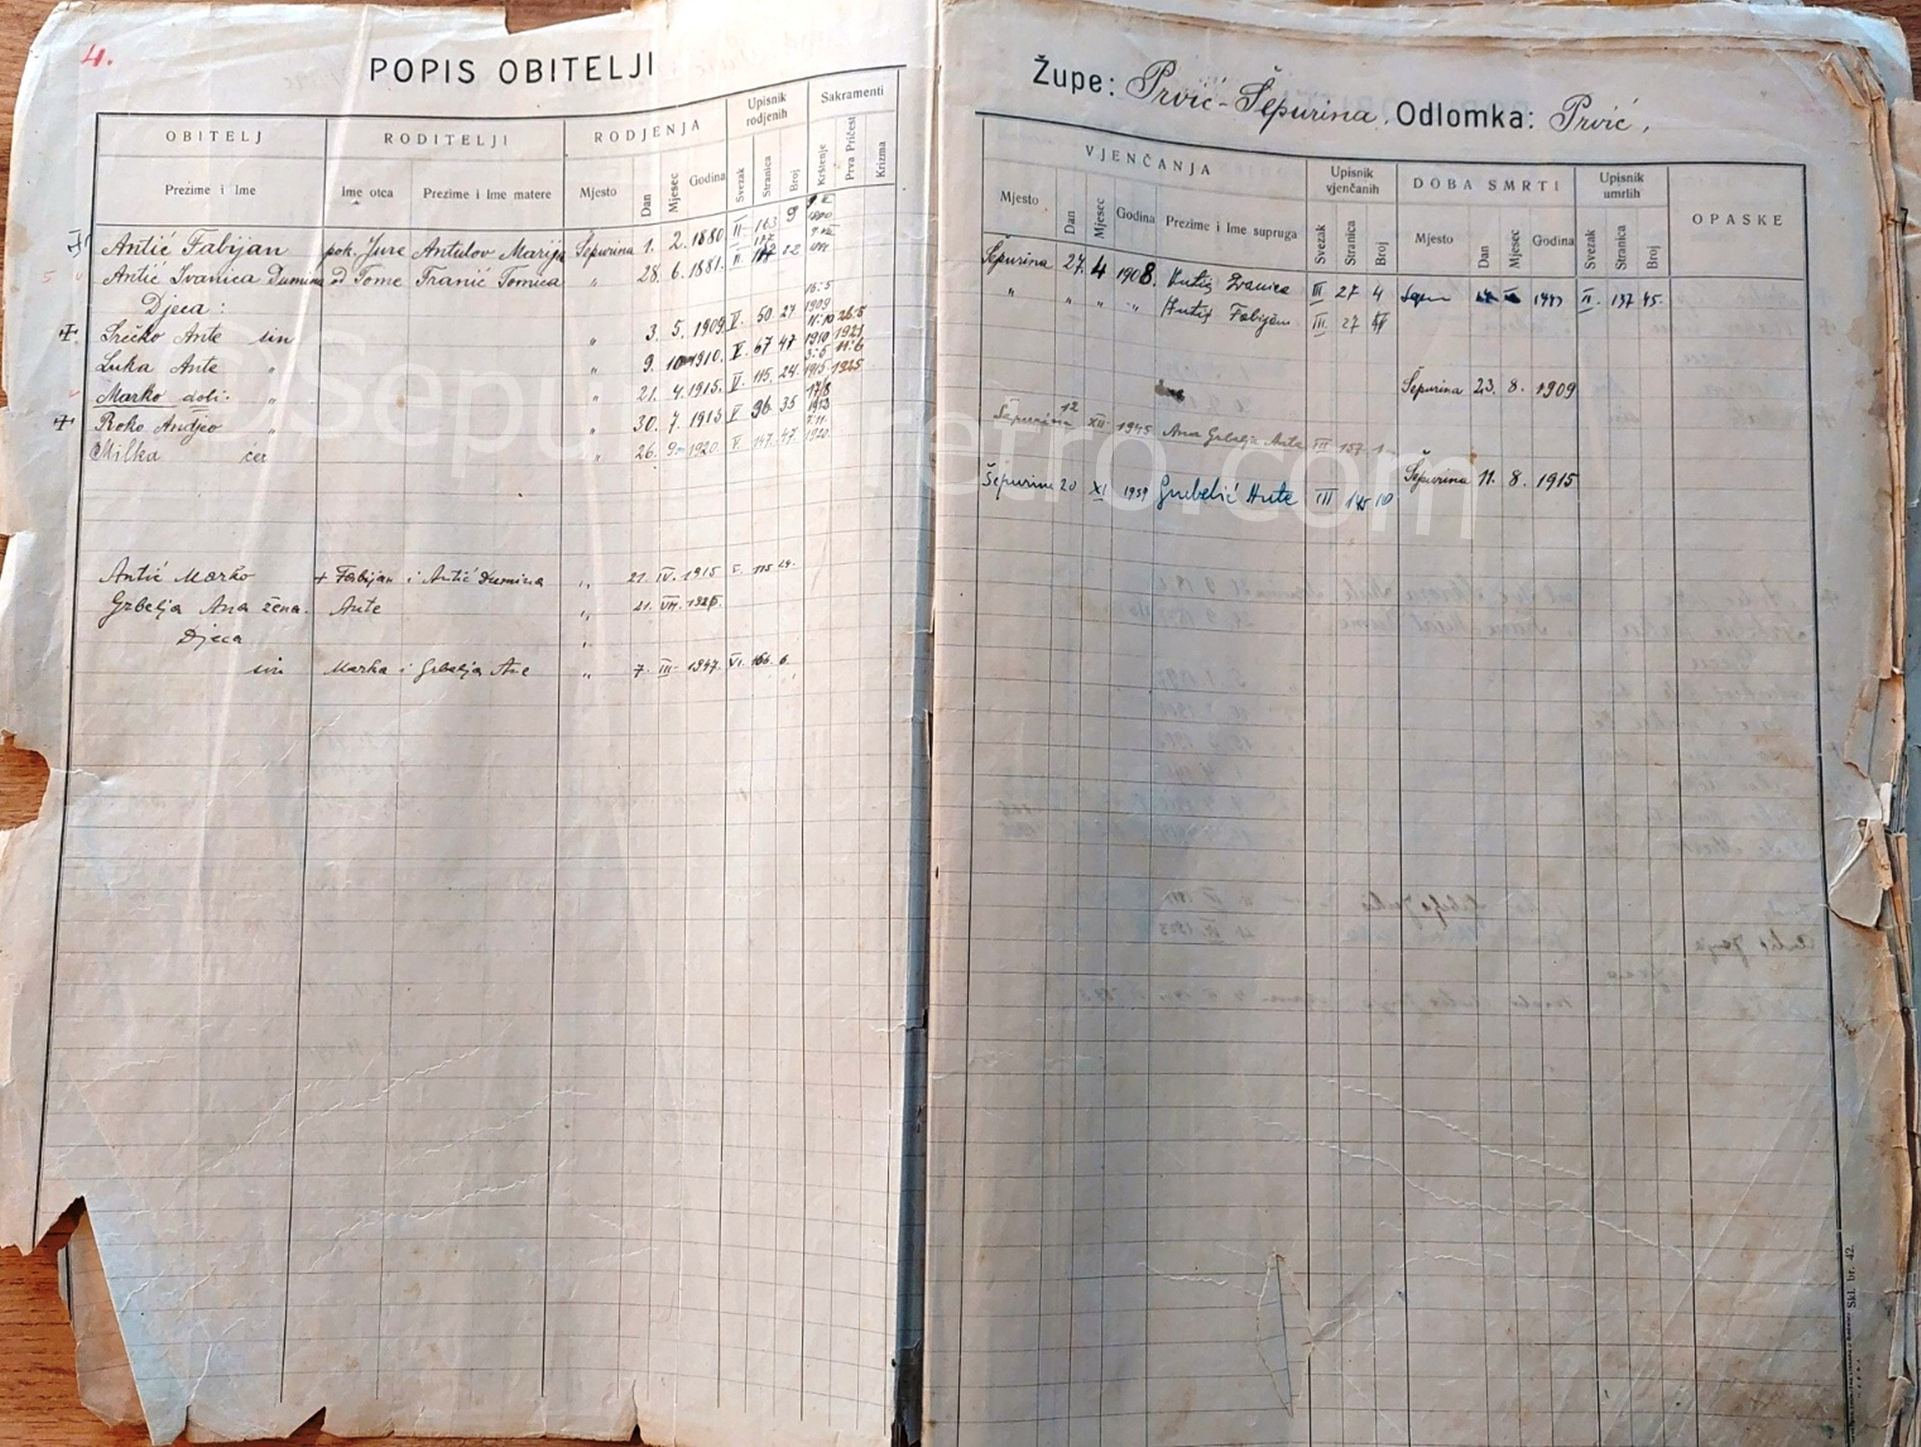 4.
POPIS OBITELJI
OBITELJ RODITELJI RODJENJA Upisnik rodjenih Sakramenti
Prezime i Ime Ime otca Prezime i Ime matere Mjesto Dan Mjesec Godina Svezak Stranica Broj Krštenje Prva Pričest Krizma
Antić Fabijan pok. Jure Antulov Marija Šepurina 1. 2. 1880 II 163 9
Antić Ivanica Dumina od Tome Franić Tomica " 28. 6. 1881. II.
Djeca:
Srećko Ante sin " 3. 5. 1909 V. 50 27 1909
Luka Ante " " 9. 10 1910. V. 67 47 1910 1921
Marko doli. " " 21. 4. 1915. V. 115. 24. 1915 1925
Roko Andjeo " " 30. 7. 1913 V 96 35 1913
Milka ćer " 26. 9 1920. V. 147. 47. 1920.
Antić Marko + Fabijan i Antić Dumina " 21. IV. 1915 V. 115 24.
Grbelja Ana žena. Ante " 21. VII.
Djeca "
sin Marka i Grbelja Ane " 7. III 1947. VI. 166. 6.
Župe: Prvić-Šepurina, Odlomka: Prvić,
VJENČANJA Upisnik vjenčanih DOBA SMRTI Upisnik umrlih OPASKE
Mjesto Dan Mjesec Godina Prezime i Ime supruga Svezak Stranica Broj Mjesto Dan Mjesec Godina Svezak Stranica Broj
Šepurina 27. 4 1908. Antić Ivanica III 27 4 II. 137 45.
" " " " Antić Fabijan III. 27
Šepurina 23. 8. 1909
Šepurina 12 XII 1945 Ana Grbelja Ante III 157. 1
Šepurina 11. 8. 1915
Šepurina 20 XI 1939 Grubelić Ante III 145 10
©Sepurine-retro.com
Skl. br. 42.